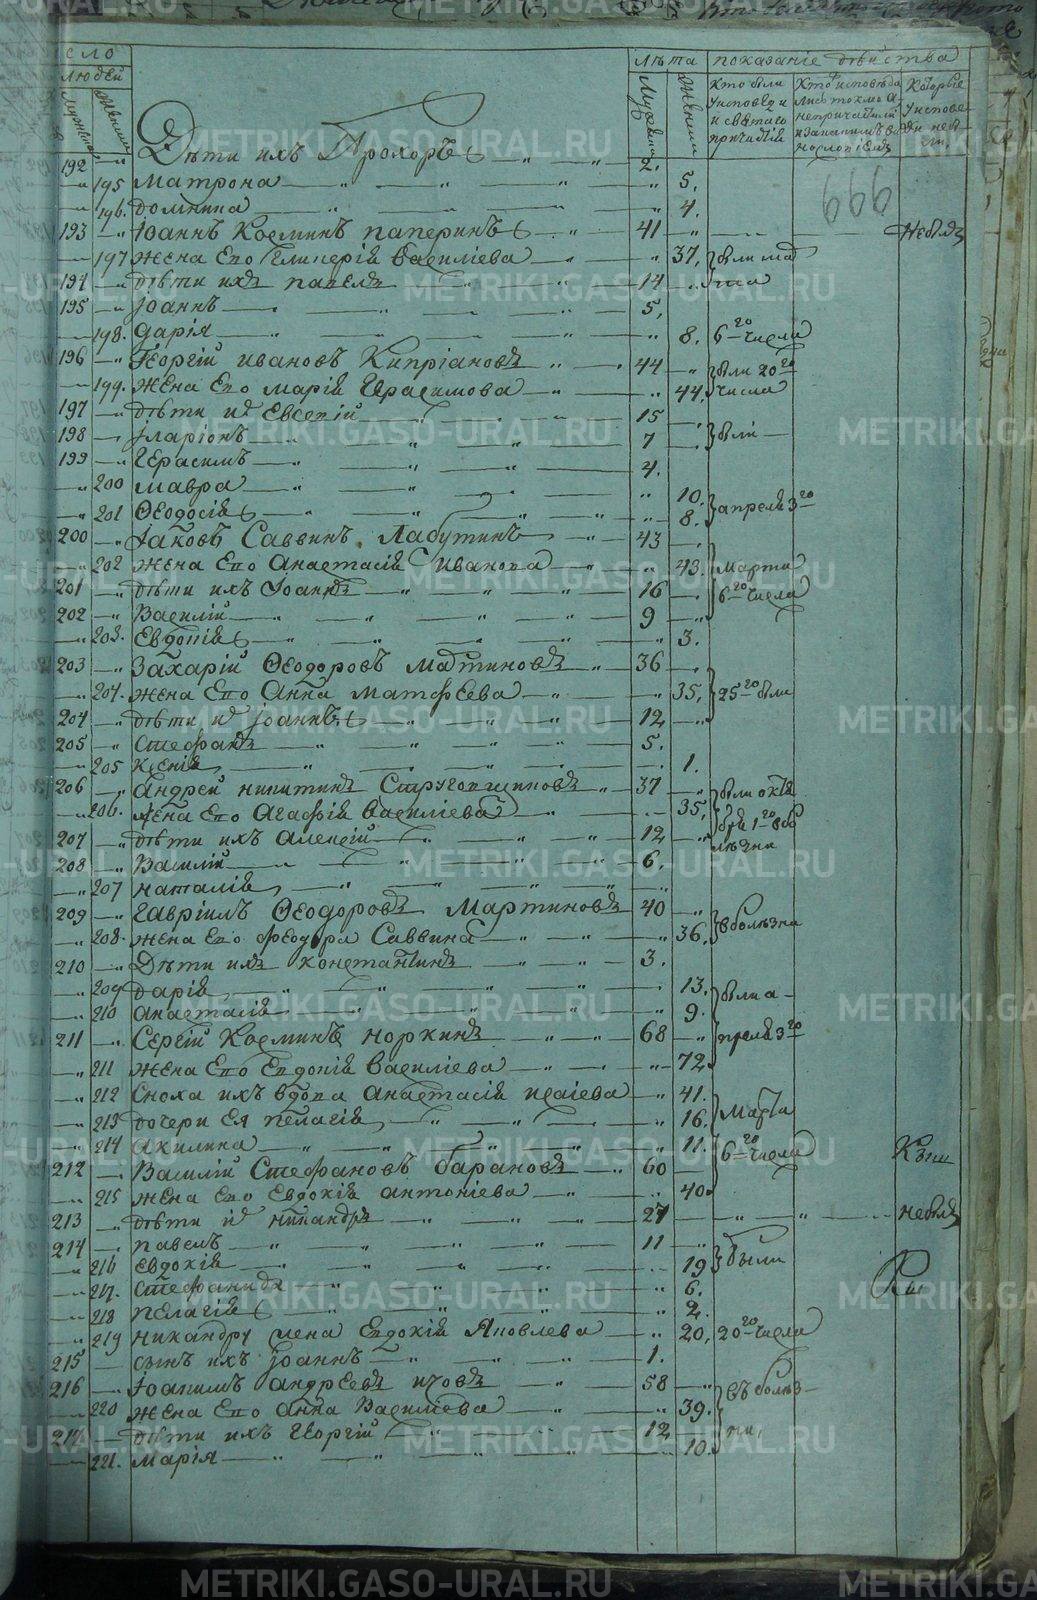 число
людей
лѣта показанiе дѣйства
Мужеска Женска
Мужска Женска
Кто были у исповеди и святаго причастiя
Которые у исповеди не были
666
192 — Дѣти ихъ Прохоръ — 2.
— 195 Матрона — 5.
— 196. домнина — 4.
193 — Іоаннъ Козминъ паперинъ — 41 — небылъ
— 197 жена Его Гликерiя Василiева — 37, были мар
194 — дѣти ихъ павелъ — 14 та
195 — Іоаннъ — 5,
— 198. дарiя — 8. 6го числа
196 — Георгiй ивановъ Кипрiановъ — 44 — были 20го
— 199. жена Его Марiя Герасимова — 44, числа
197 — дѣти их Евсевiй — 15
198 — Iларiонъ — 7 были
199 — Герасимъ — 4.
— 200 мавра — 10.
— 201 Ѳеодосiя — 8. апреля 3го
200 — Iаковъ Саввинъ Лабутинъ — 43
— 202 жена Его Анастасiя Иванова — 43. Марта
201 — дѣти ихъ Iоаннъ — 16 — 6го числа
202 — Василiй — 9
— 203. Евдокiя — 3.
203 — Захарiй Ѳеодоровъ Мартиновъ — 36
— 204. жена Его Анна матфеева — 35, 25го были
204 — дѣти их iоаннъ — 12
205 — стефанъ — 5.
— 205 ксенiя — 1.
206 — Андрей никитинъ — 37 — были октя
— 206. жена Его Агафiя василiева — 35, бря 1го вбо
207 — дѣти ихъ алексiй — 12 — лѣзни
208 — Василiй — 6,
— 207 наталiя
209 — Гаврiилъ Ѳеодоровъ Мартиновъ — 40
— 208. жена Его феодора Саввина — 36, вболѣзна
210 — Дѣти ихъ константинъ — 3.
— 209 дарiя — 13. были а-
— 210 анастасiя — 9.
211 — Сергiй Козминъ Норкинъ — 68 — преля 3го
— 211 жена Его Евдокiя василiева — 72
— 212 Сноха ихъ вдова Анастасiя исаiева — 41.
— 213 дочери Ея пелагiя — 16. Марта
— 214 акилина — 11. 6го числа
212 — Василiй Стефановъ барановъ — 60
— 215 жена Его Евдокiя антонiева — 40
213 — дѣти их никандръ — 27 — небылъ
214 — павелъ — 11
— 216 евдокiя — 19 были
— 217. стефанида — 6.
— 218 пелагiя — 2.
— 219 никандру жена Евдокiя Яковлева — 20, 20го числа
215 — сынъ ихъ iоаннъ — 1.
216 — Iоакимъ андреевъ — 58
— 220 жена Его Анна Василiева — 39. въ болѣз-
217 — дѣти ихъ Георгiй — 12 ни,
— 221. марiя — 10.
METRIKI.GASO-URAL.RU